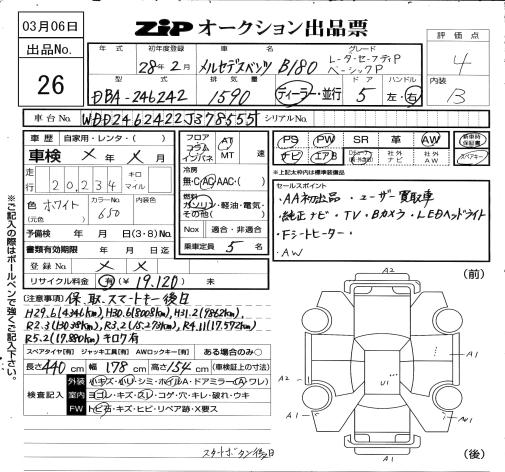 03月06日
ZiP オークション出品票
出品No.
26
年式
初年度登録
28年2月
車名
メルセデスベンツ B180
グレード
レーダーセーフティP
ベーシックP
評価点
4
型式
DBA-246242
排気量
1590
ディーラー・並行
ドア
5
ハンドル
左・右
内装
B
車台No.
WDD2462422J378555
シリアルNo.
車歴 自家用・レンタ・( )
車検 × 年 × 月
走行 20,234 キロ マイル
色 ホワイト
(元色)
カラーNo.
650
内装色
予備検 年 月 日(3・8)No.
書類有効期限 年 月 日迄
登録No. × ×
リサイクル料金 有(¥ 19,120) 未
フロア
コラム
インパネ
AT
MT
速
冷房
無・C・AC・AAC・( )
燃料
ガソリン・軽油・電気・
その他( )
Nox 適合・非適合
乗車定員 5 名
PS PW SR 革 AW
新車時保証書
ナビ エアB
社外ナビ
社外AW
スペアキー
※上記太枠内は標準装備品
セールスポイント
・AA初出品 ・ユーザー買取車
・純正ナビ・TV・Bカメラ・LEDヘッドライト
・Fシートヒーター・
・AW
※ご記入の際はボールペンで強くご記入下さい。
(注意事項) 保、取、スマートキー後日
H29.6(4346km), H30.6(8008km), H31.2(9862km),
R2.3(13038km), R3.2(15.273km), R4.11(17.572km)
R5.2(17.880km) キロ有
スペアタイヤ[有] ジャッキ工具[有] AWロックキー[有] ある場合のみ○
長さ 440 cm 幅 178 cm 高さ 154 cm (車検証上の寸法)
検査記入
外装 小キズ・小凹・シミ・ホイルA・ドアミラー(A・ワレ)
室内 ヨゴレ・キズ・スレ・コゲ・穴・キレ・破れ・ウキ
FW トビ石・キズ・ヒビ・リペア跡・X要ス
スタートボタン後日
(前)
A2
A1
A2
U1
A1
A1
AU1
A2
(後)